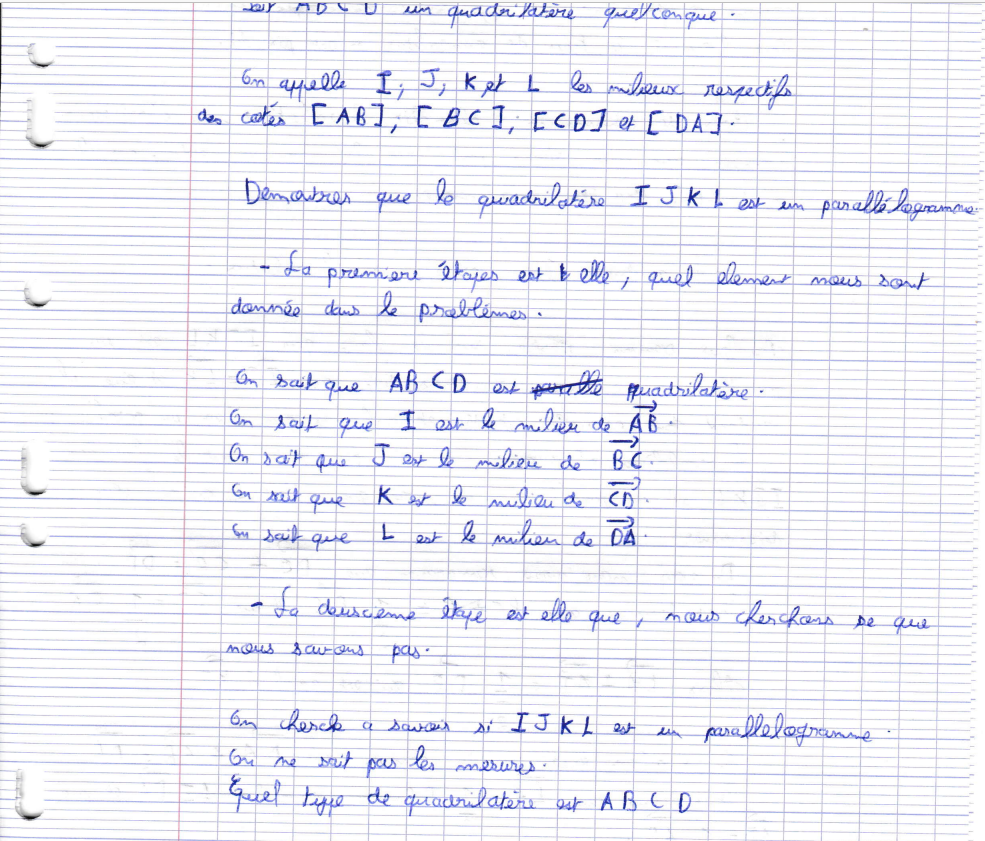 soit ABCD un quadrilatère quelconque.
On appelle I, J, K et L les milieux respectifs
des cotés [AB], [BC], [CD] et [DA].
Demontrer que le quadrilatère IJKL est un parallélogramme.
- La premiere étapes est elle, quel element nous sont
donnée dans le problèmes.
On sait que ABCD est quadrilatère.
On sait que I est le milieu de AB.
On sait que J est le milieu de BC.
On sait que K est le milieu de CD.
On sait que L est le milieu de DA.
- La deuxcième étape est elle que, nous cherchons se que
nous savons pas.
On cherche a savoir si IJKL est un parallelogramme.
On ne sait pas les mesures.
Quel type de quadrilatère est ABCD